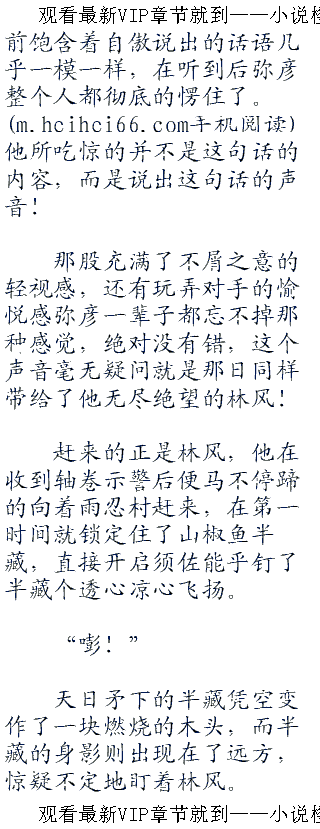 观看最新VIP章节就到——小说检
前饱含着自傲说出的话语几
乎一模一样，在听到后弥彦
整个人都彻底的愣住了。
(m.hcihci66.com手机阅读)
他所吃惊的并不是这句话的
内容，而是说出这句话的声
音！
那股充满了不屑之意的
轻视感，还有玩弄对手的愉
悦感弥彦一辈子都忘不掉那
种感觉，绝对没有错，这个
声音毫无疑问就是那日同样
带给了他无尽绝望的林风！
赶来的正是林风，他在
收到轴卷示警后便马不停蹄
的向着雨忍村赶来，在第一
时间就锁定住了山椒鱼半
藏，直接开启须佐能乎钉了
半藏个透心凉心飞扬。
“嘭！”
天日矛下的半藏凭空变
作了一块燃烧的木头，而半
藏的身影则出现在了远方，
惊疑不定地盯着林风。
观看最新VIP章节就到——小说检